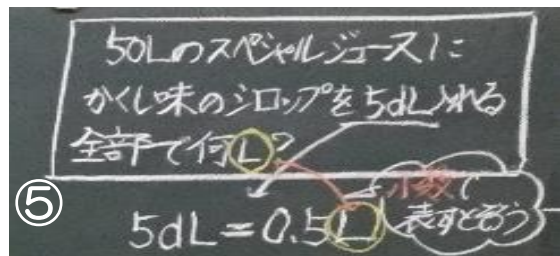 50Lのスペシャルジュースに
かくし味のシロップを5dL入れる
全部で何L?
⑤
5dL=0.5L
小数で
表すとそろう